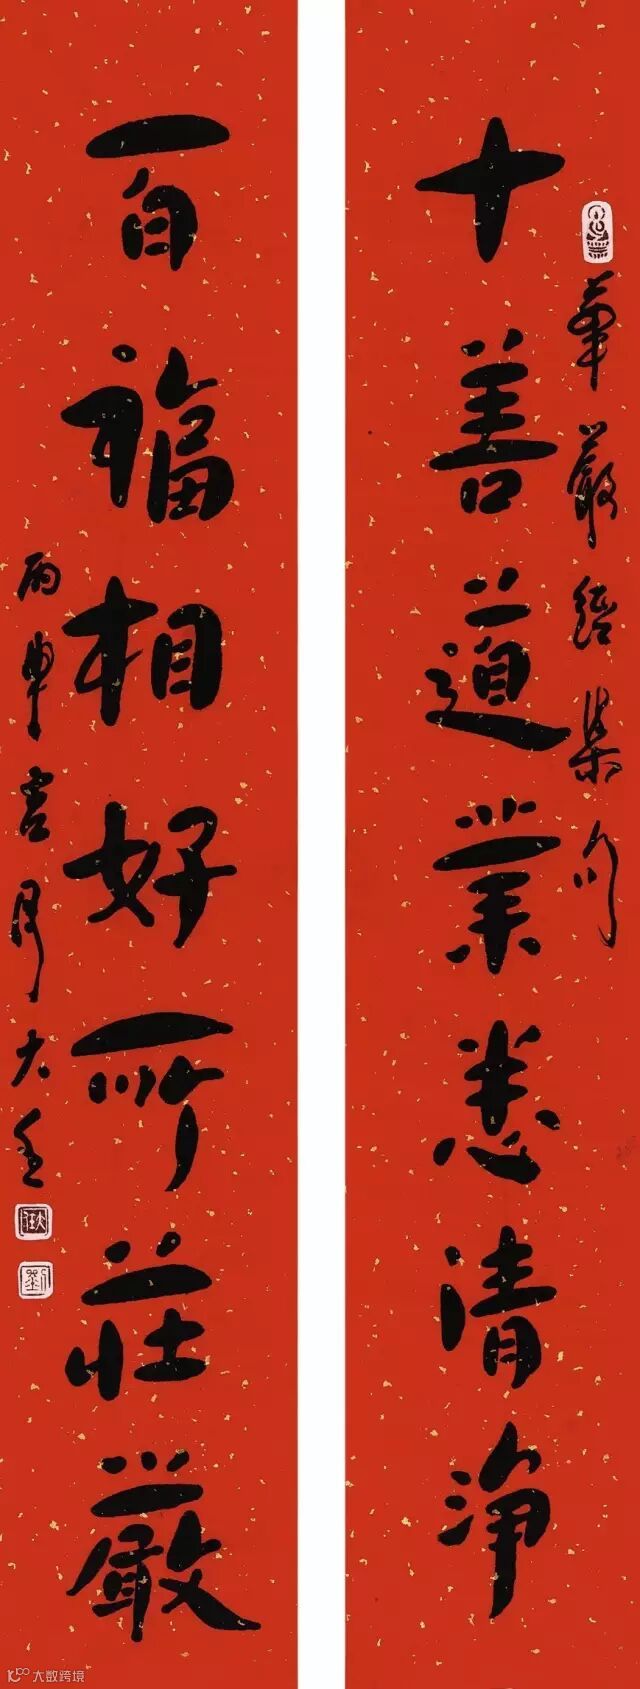 華嚴經集句
十善道業悉清淨
百福相好所莊嚴
丙申
大数跨境